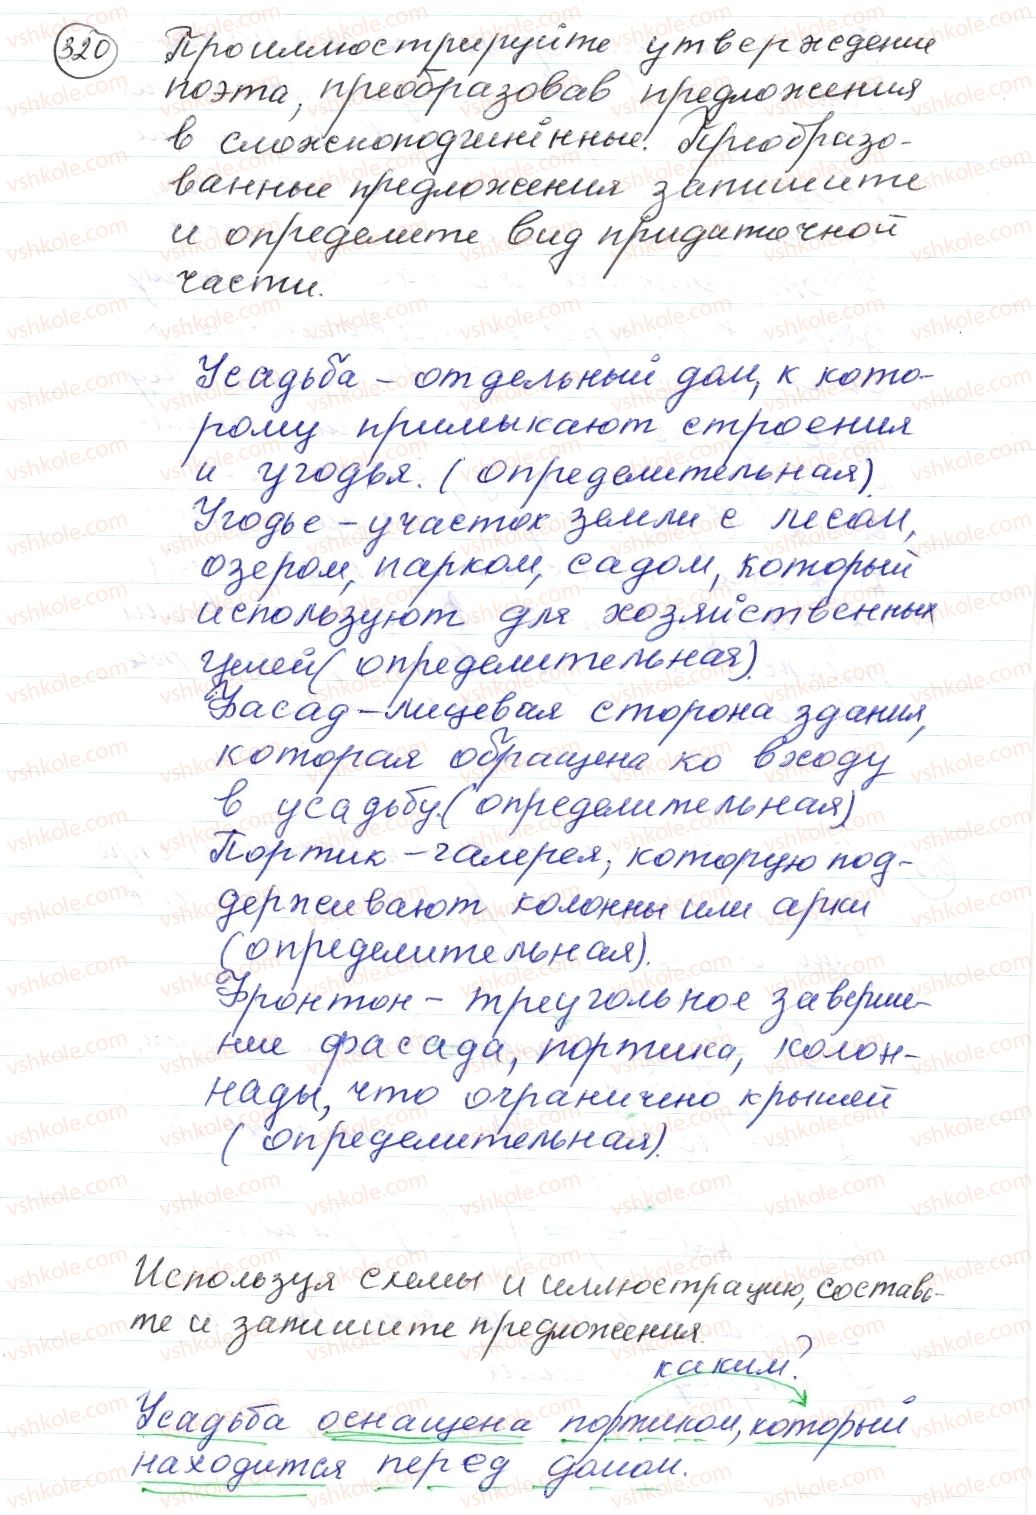 320 Проиллюстрируйте утверждение
поэта, преобразовав предложения
в сложноподчинённые. Преобразо-
ванные предложения запишите
и определите вид придаточной
части.
Усадьба – отдельный дом, к кото-
рому примыкают строения
и угодья. (определительная).
Угодье – участок земли с лесом,
озером, парком, садом, который
используют для хозяйственных
целей (определительная).
Фасад – лицевая сторона здания,
которая обращена ко входу
в усадьбу. (определительная)
Портик – галерея, которую под-
держивают колонны или арки
(определительная).
Фронтон – треугольное заверше-
ние фасада, портика, колон-
нады, что ограничено крышей
(определительная).
Используя схемы и иллюстрацию, составь-
те и запишите предложения.
каким?
Усадьба оснащена портиком, который
находится перед домом.